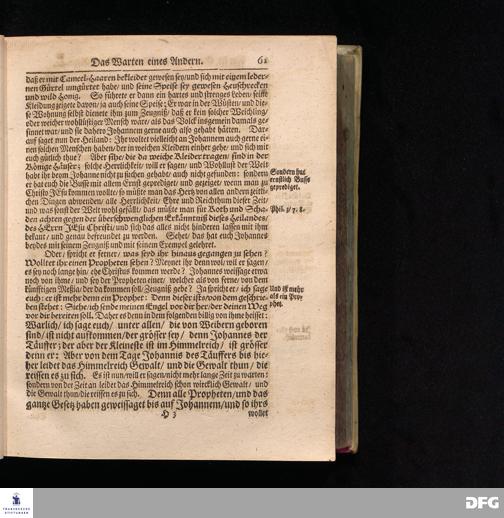 Das Warten eines Andern. 61
daß er mit Cameel-Haaren bekleidet gewesen sey/und sich mit einem leder-
nen Gürtel umgürtet habe/ und seine Speise sey gewesen Heuschrecken
und wild Honig. So führete er dann ein hartes und strenges Leben/ seine
Kleidung zeigete davon/ja auch seine Speise; Er war in der Wüsten/ und die-
se Wohnung selbst dienete ihm zum Zeugniß/ daß er kein solcher Weichling/
oder weicher wohllüstiger Mensch wäre/ als das Volck insgemein damals ge-
sinnet war/und sie dahero Johannem gerne auch also gehabt hätten. Dar-
auf saget nun der Heiland: Ihr woltet vielleicht an Johannem auch gerne ei-
nen solchen Menschen haben/der in weichen Kleidern einher gehe/ und sich mit
euch gütlich thue? Aber sihe/ die da weiche Kleider tragen/ sind in der
Könige Häuser; solche Herrlichkeit/ will er sagen/ und Wohllust der Welt
habt ihr beym Johanne nicht zu suchen gehabt/ auch nicht gefunden: sondern
er hat euch die Busse mit allem Ernst geprediget/ und gezeiget/ wenn man zu
Christo JEsu kommen wolle/ so müßte man das Hertz von allen andern zeitli-
chen Dingen abwenden/ alle Herrlichkeit/ Ehre und Reichthum dieser Zeit/
und was sonst der Welt wohl gefällt/ das müßte man für Koth und Scha-
den achten gegen der überschwenglichen Erkänntniß dieses Heilandes/
des HErrn JEsu Christi/ und sich das alles nicht hinderen lassen mit ihm
bekant/ und genau befreundet zu werden. Sehet/ das hat euch Johannes
beydes mit seinem Zeugniß und mit seinem Exempel gelehret.
Sondern hat
ernstlich Busse
geprediget.
Phil. 3/ 7. 8.
Oder/ spricht er ferner/ was seyd ihr hinaus gegangen zu sehen?
Wolltet ihr einen Propheten sehen? Meynet ihr denn wol/ wil er sagen/
es sey noch lange hin/ ehe Christus kommen werde? Johannes weissage etwa
noch von ihme/ und sey der Propheten einer/ welcher als von ferne/ von dem
künfftigen Meßia/der da kommen soll/ Zeugniß gebe? Ja spricht er/ ich sage
euch: er ist mehr denn ein Prophet: Denn dieser ists/von dem geschrie-
ben stehet: Siehe ich sende meinen Engel vor dir her/der deinen Weg
vor dir bereiten soll. Daher es denn in dem folgenden billig von ihme heisset:
Warlich/ ich sage euch/ unter allen/ die von Weibern geboren
sind/ ist nicht aufkommen/der grösser sey/ denn Johannes der
Täuffer; der aber der Kleineste ist im Himmelreich/ ist grösser
denn er: Aber von dem Tage Johannis des Täuffers bis hie-
her leidet das Himmelreich Gewalt/ und die Gewalt thun/ die
reissen es zu sich. Es ist nun/will er sagen/nicht mehr lange Zeit zu warten:
sondern von der Zeit an leidet das Himmelreich schon würcklich Gewalt/ und
die Gewalt thun/die reissen es zu sich. Denn alle Propheten/und das
gantze Gesetz haben geweissaget bis auf Johannem/und so ihrs
Und ist mehr
als ein Pro-
phet.
H 3 wollet
FRANCKESCHE
STIFTUNGEN
DFG